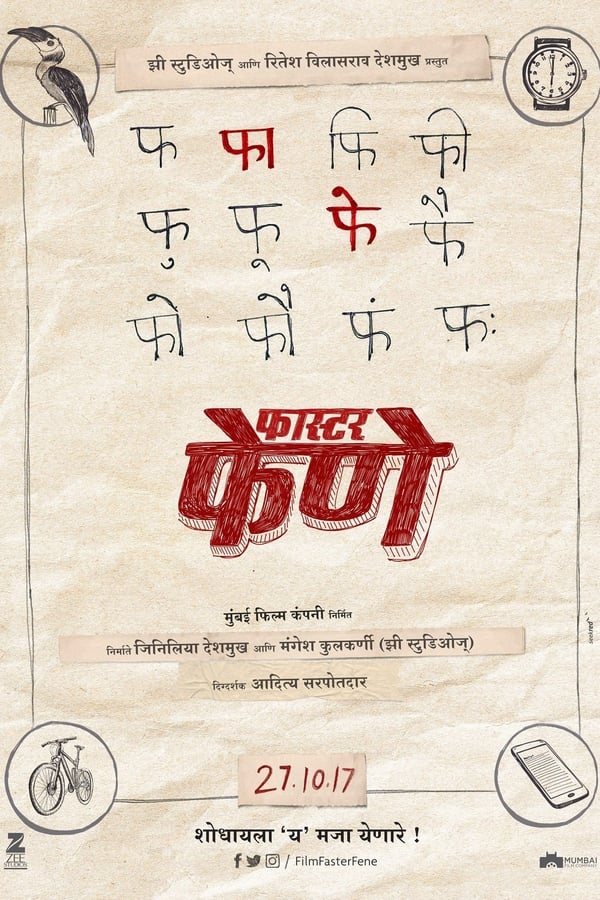 झी स्टुडिओज् आणि रितेश विलासराव देशमुख प्रस्तुत
फ फा फि फी
फु फू फे फै
फो फौ फं फः
फास्टर
फेणे
मुंबई फिल्म कंपनी निर्मित
निर्माते जिनिलिया देशमुख आणि मंगेश कुलकर्णी (झी स्टुडिओज्)
दिग्दर्शक आदित्य सरपोतदार
seekred
27.10.17
शोधायला ‘य’ मजा येणारे !
/ FilmFasterFene
ZEE
STUDIOS
MUMBAI
FILM COMPANY